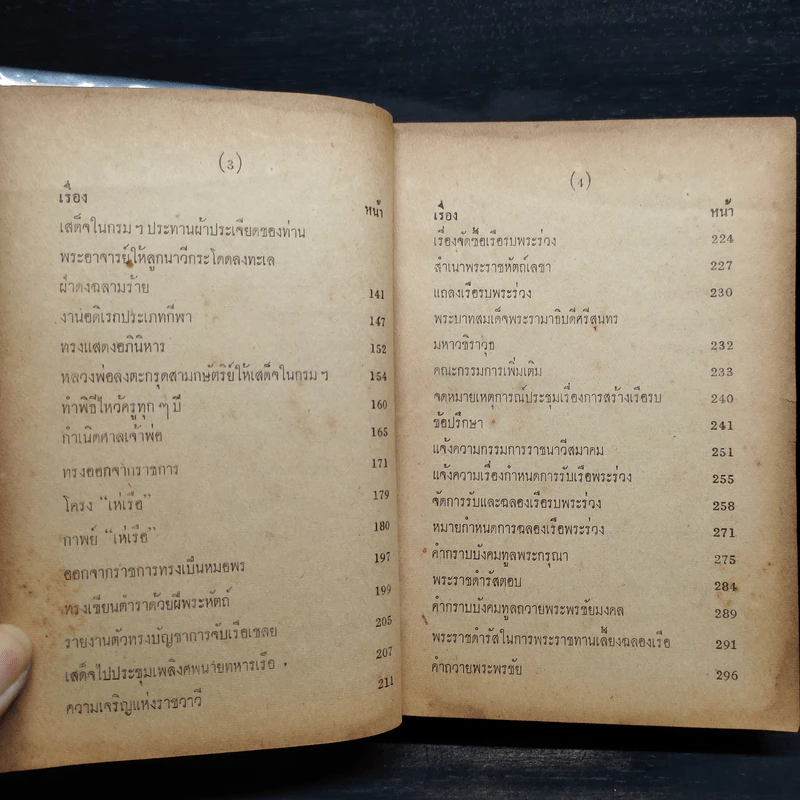 (3)
เรื่อง หน้า
เสด็จในกรม ฯ ประทานผ้าประเจียดของท่าน
พระอาจารย์ให้ลูกนาวีกระโดดลงทะเล
ฝ่าดงฉลามร้าย 141
งานอดิเรกประเภทกีฬา 147
ทรงแสดงอภินิหาร 152
หลวงพ่อลงตะกรุดสามกษัตริย์ให้เสด็จในกรม ฯ 154
ทำพิธีไหว้ครูทุก ๆ ปี 160
กำเนิดศาลเจ้าพ่อ 165
ทรงออกจากราชการ 171
โครง “เห่เรือ” 179
กาพย์ “เห่เรือ” 180
ออกจากราชการทรงเป็นหมอพร 197
ทรงเขียนตำราด้วยฝีพระหัตถ์ 199
รายงานตัวทรงบัญชาการจับเรือเชลย 205
เสด็จไปประชุมเพลิงศพนายทหารเรือ 207
ความเจริญแห่งราชวาวี 211
(4)
เรื่อง หน้า
เรื่องจัดซื้อเรือรบพระร่วง 224
สำเนาพระราชหัตถ์เลขา 227
แถลงเรือรบพระร่วง 230
พระบาทสมเด็จพระรามาธิบดีศรีสุนทร
มหาวชิราวุธ 232
คณะกรรมการเพิ่มเติม 233
จดหมายเหตุการณ์ประชุมเรื่องการสร้างเรือรบ 240
ข้อปรึกษา 241
แจ้งความกรรมการราชนาวีสมาคม 251
แจ้งความเรื่องกำหนดการรับเรือพระร่วง 255
จัดการรับและฉลองเรือรบพระร่วง 258
หมายกำหนดการฉลองเรือพระร่วง 271
คำกราบบังคมทูลพระกรุณา 275
พระราชดำรัสตอบ 284
คำกราบบังคมทูลถวายพระพรชัยมงคล 289
พระราชดำรัสในการพระราชทานเลี้ยงฉลองเรือ 291
คำถวายพระพรชัย 296